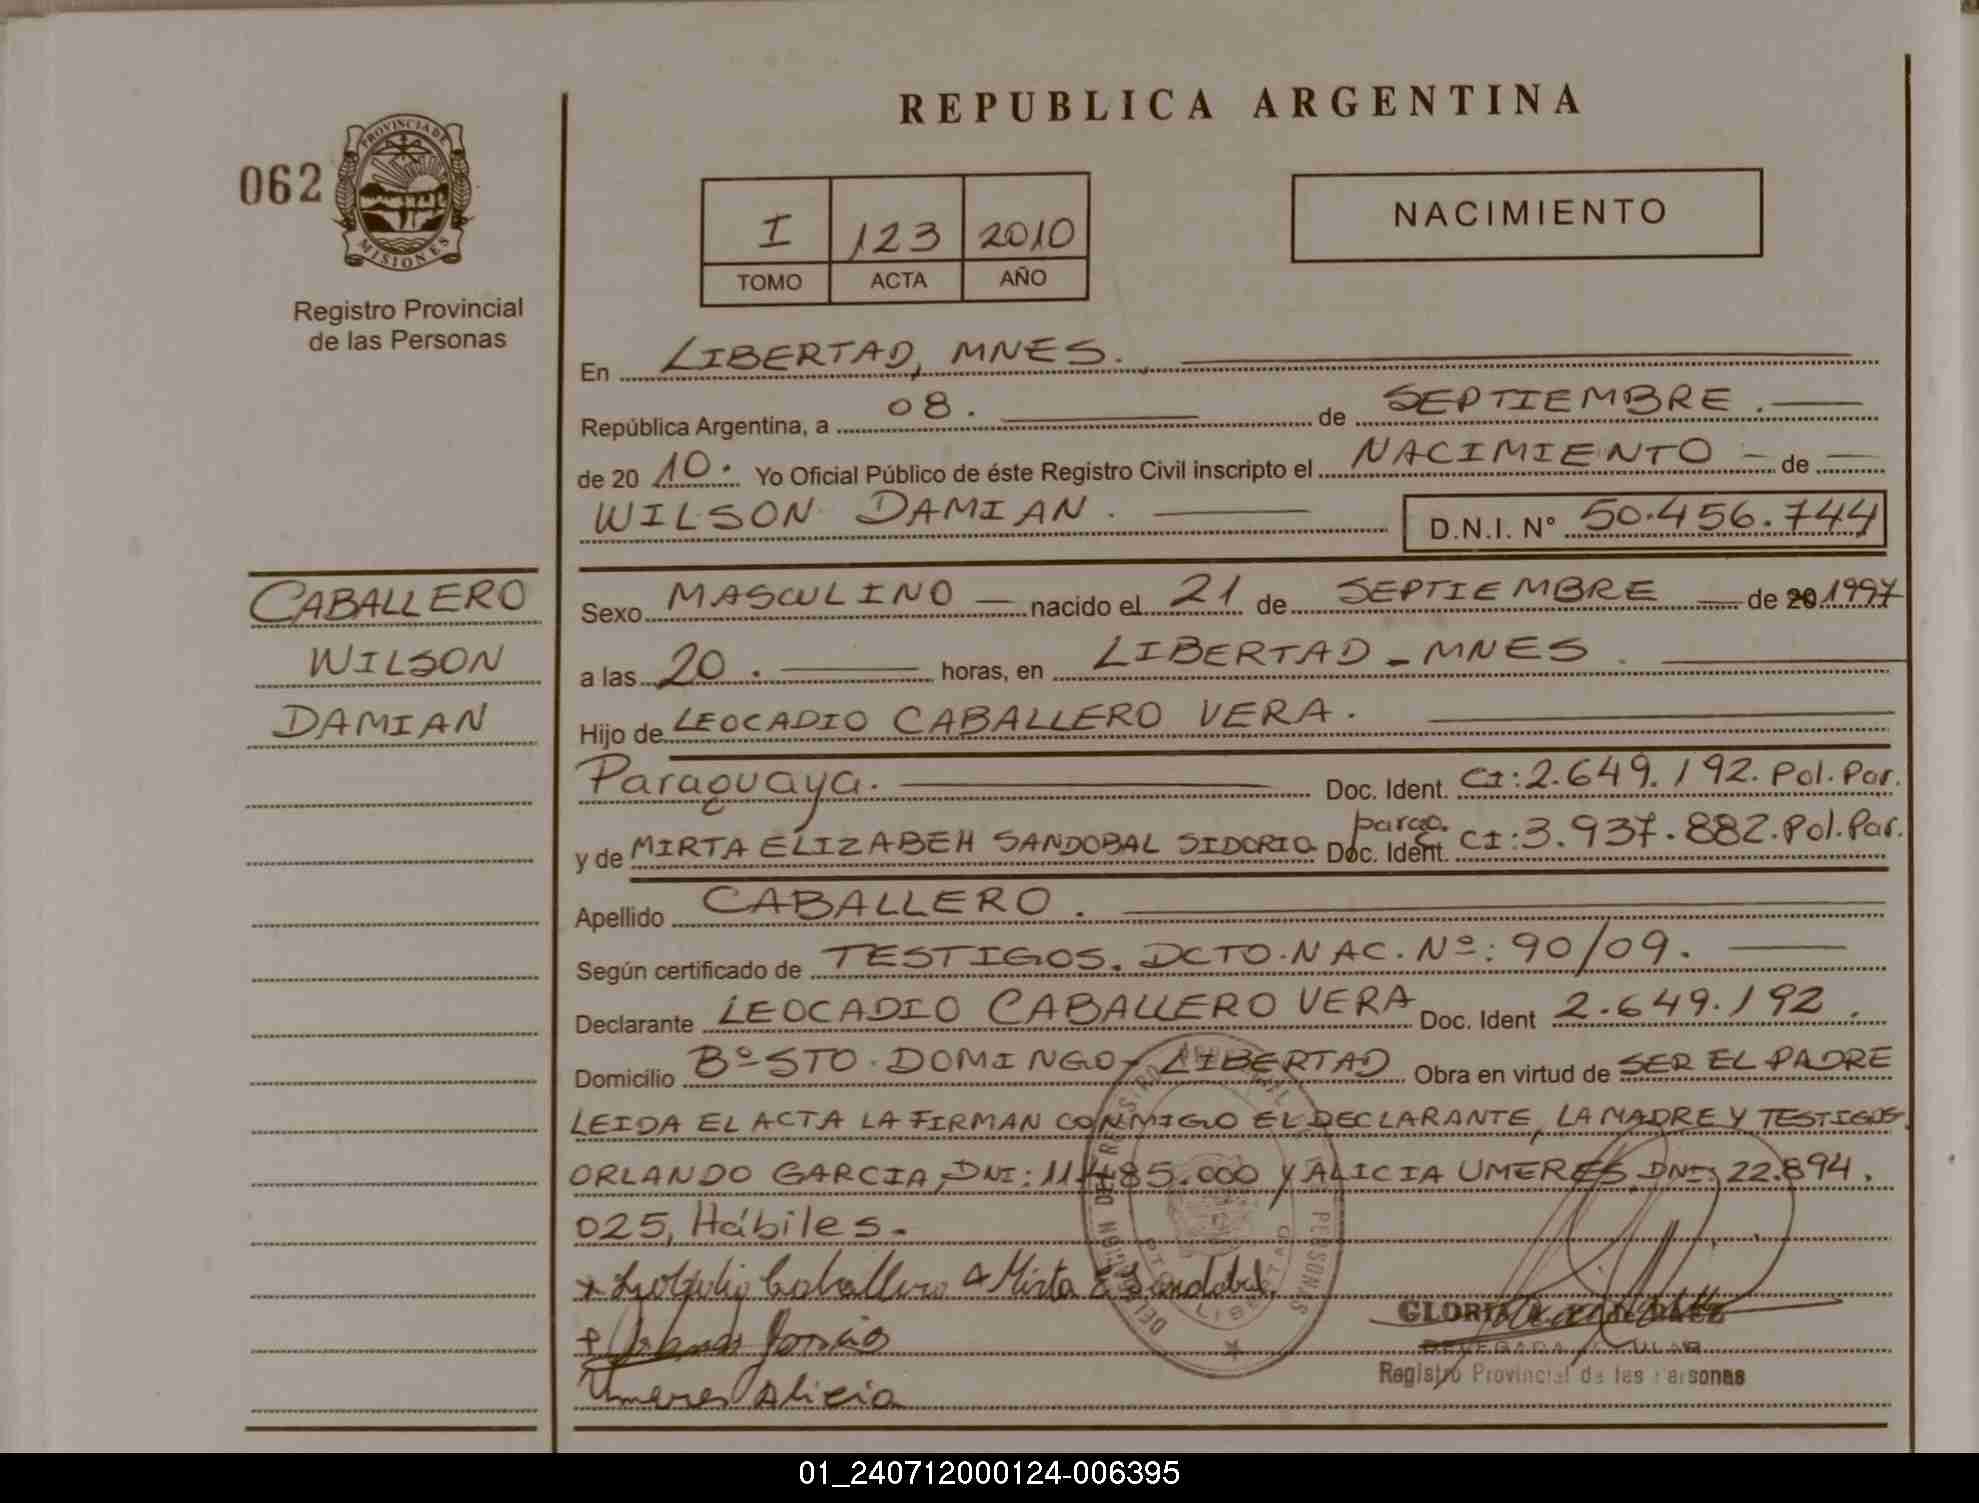 REPUBLICA ARGENTINA
062
PROVINCIA DE
MISIONES
Registro Provincial
de las Personas
I 123 2010
TOMO ACTA AÑO
NACIMIENTO
En LIBERTAD, MNES.
República Argentina, a 08. de SEPTIEMBRE.
de 20 10. Yo Oficial Público de éste Registro Civil inscripto el NACIMIENTO de
WILSON DAMIAN. D.N.I. N° 50.456.744
CABALLERO
WILSON
DAMIAN
Sexo MASCULINO nacido el 21 de SEPTIEMBRE de 20 1997
a las 20. horas, en LIBERTAD - MNES.
Hijo de LEOCADIO CABALLERO VERA.
Paraguaya. Doc. Ident. CI: 2.649.192. Pol. Par.
y de MIRTA ELIZABEH SANDOBAL SIDORIO parag. Doc. Ident. CI: 3.937.882. Pol. Par.
Apellido CABALLERO.
Según certificado de TESTIGOS. DCTO. NAC. Nº: 90/09.
Declarante LEOCADIO CABALLERO VERA Doc. Ident 2.649.192.
Domicilio Bº STO. DOMINGO - LIBERTAD Obra en virtud de SER EL PADRE
LEIDA EL ACTA LA FIRMAN CONMIGO EL DECLARANTE, LA MADRE Y TESTIGOS
ORLANDO GARCIA, DNI: 11.485.000 Y ALICIA UMERES, DNI: 22.894.
025, Hábiles.
Caballero Mirta E Sandobal
Umeres Alicia
GLORIA
Registro Provincial de las Personas
LIBERTAD
01_240712000124-006395